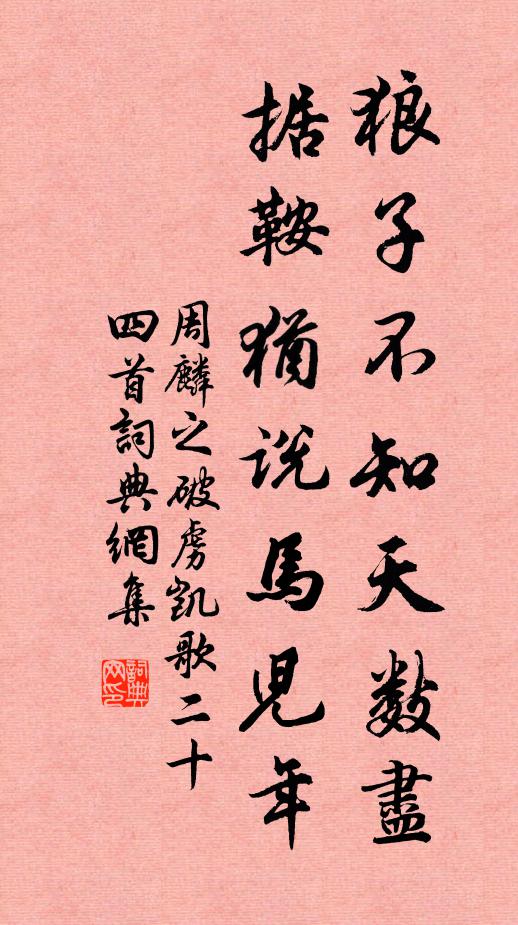 狼子不知天數盡
据鞍猶説馬兒年
周麟之破虜凱歌二十
四首詞典網集
詞典
网印